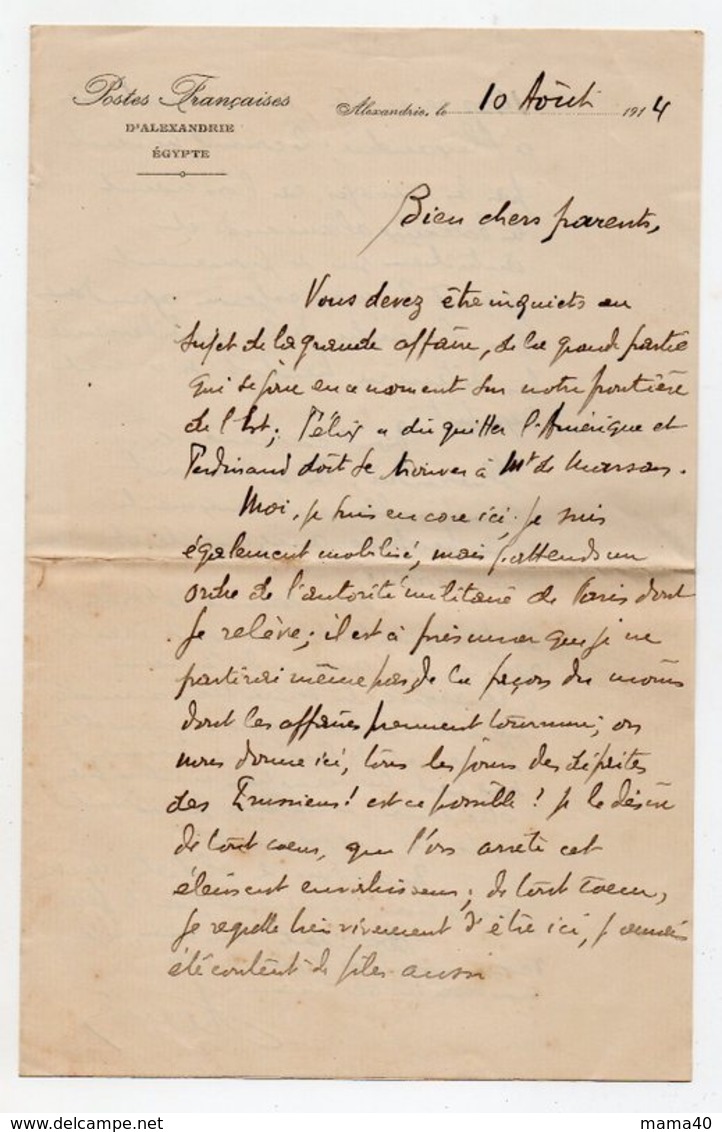 Postes Françaises
D'ALEXANDRIE
ÉGYPTE
Alexandrie, le 10 Août 1914
Bien chers parents,
Vous devez être inquiets au
sujet de la grande affaire, de la grande partie
qui se joue en ce moment sur notre frontière
de l'Est; Félix a dû quitter l'Amérique et
Ferdinand doit se trouver à Mt de Marsan.
Moi, je suis encore ici; je suis
également mobilisé, mais j'attends un
ordre de l'autorité militaire de Paris dont
je relève; il est à présumer que je ne
partirai même pas, de la façon du moins
dont les affaires prennent tournure; on
nous donne ici, tous les jours des défaites
des Prussiens! est-ce possible? je le désire
de tout coeur, que l'on arrête cet
élément envahisseur; de tout coeur,
je regrette bien vivement d'être ici, j'aurais
été content de filer aussi
mama40